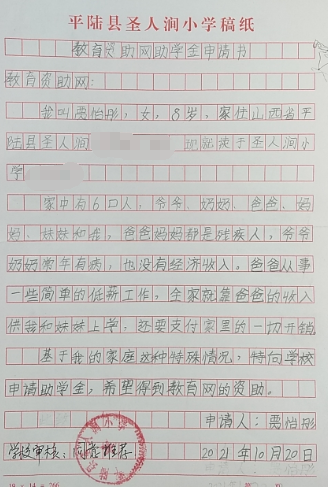 平陆县圣人涧小学稿纸
教育资助网助学金申请书
教育资助网：
我叫贾怡彤，女，8岁，家住山西省平
陆县圣人涧 现就读于圣人涧小
学
家中有6口人，爷爷、奶奶、爸爸、妈
妈、妹妹和我，爸爸妈妈都是残疾人，爷爷
奶奶常年有病，也没有经济收入。爸爸从事
一些简单的低薪工作，全家就靠爸爸的收入
供我和妹妹上学，还要支付家里的一切开销
基于我的家庭这种特殊情况，特向学校
申请助学金，希望得到教育网的资助。
申请人：贾怡彤
学校审核：同意推荐 2021年10月20日